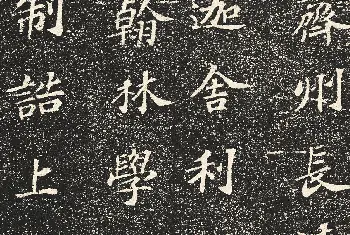 齊州長
迦舍利
翰林學
制誥上